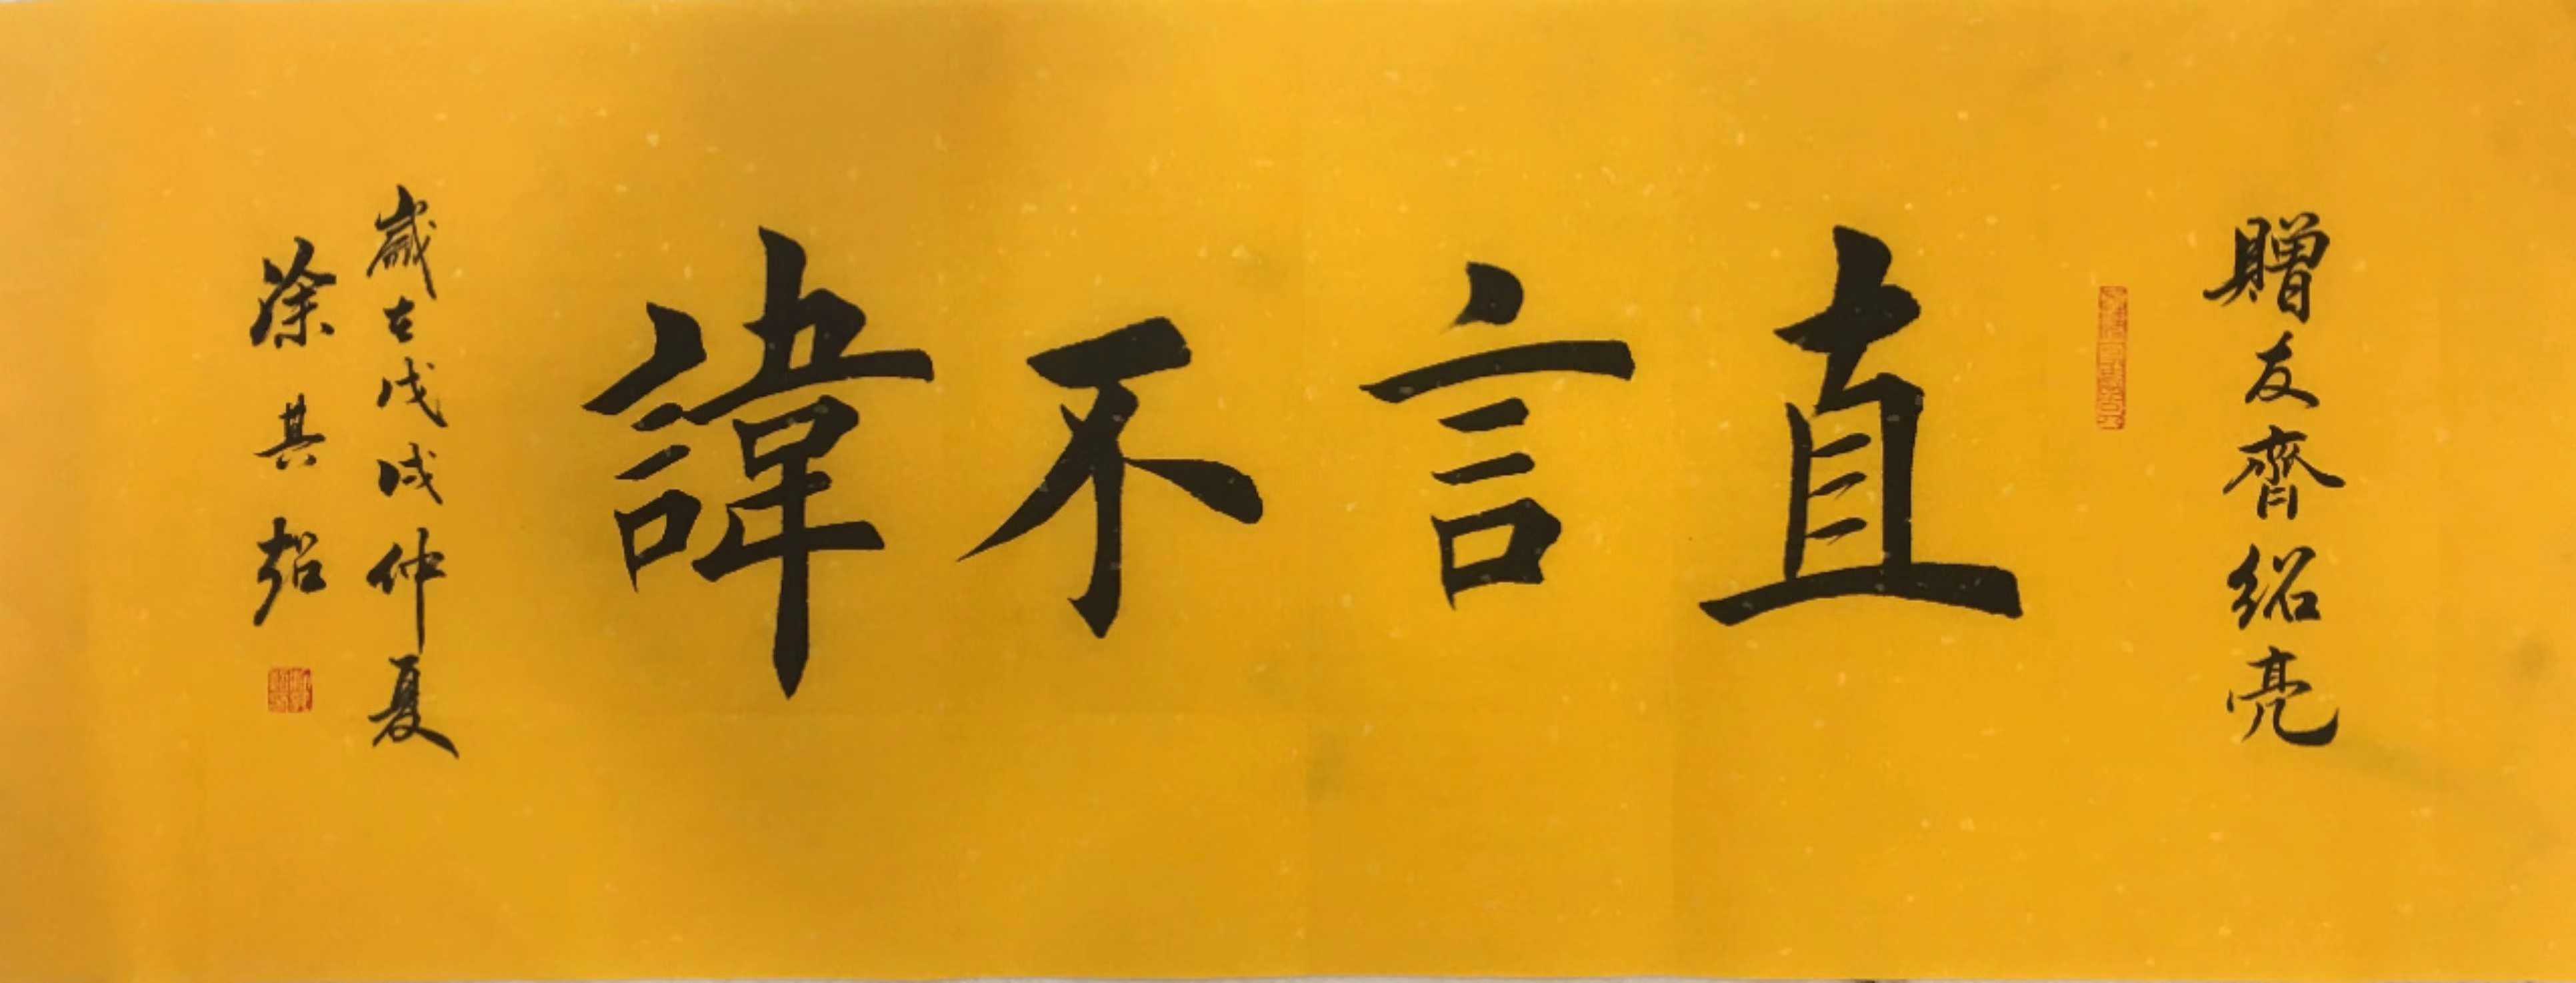 贈友齊紹亮
直言不諱
歲在戊戌仲夏
涂其超